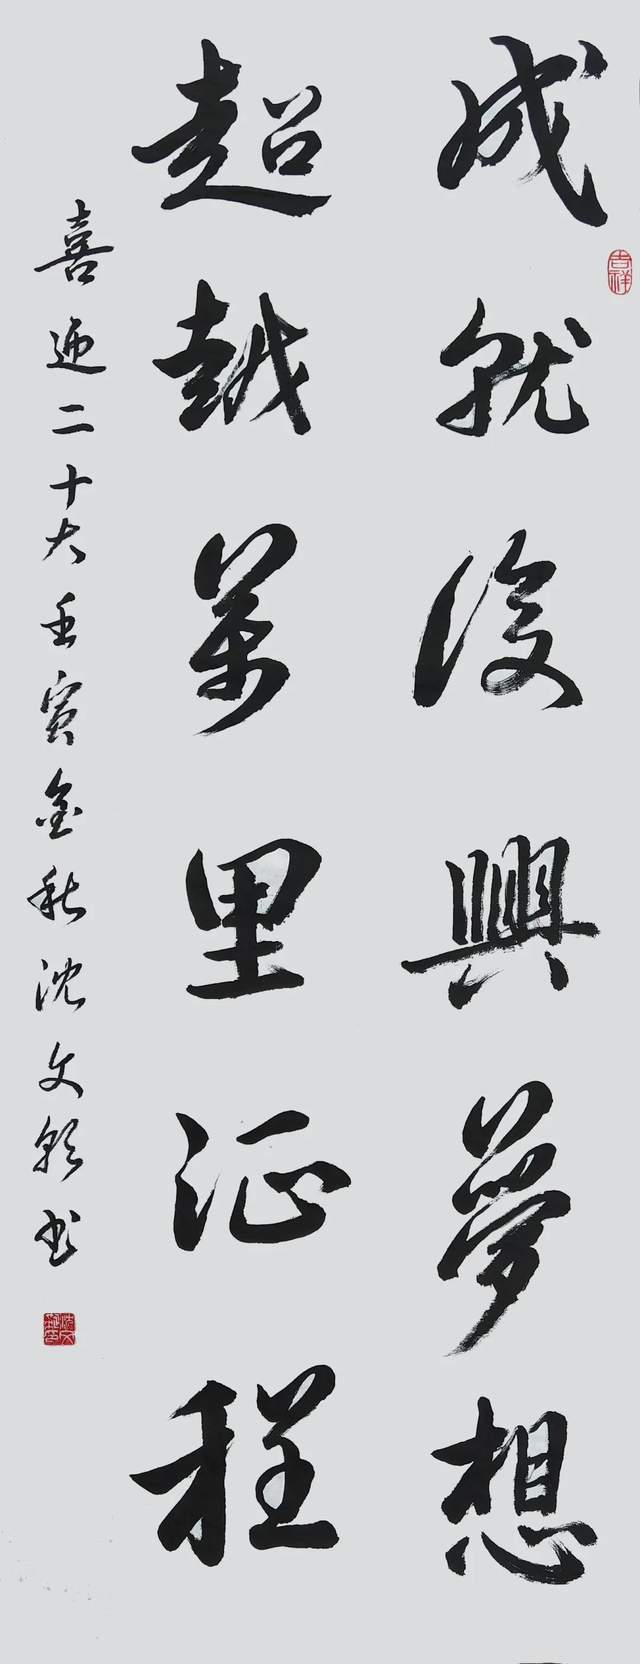 成就復興夢想
吉祥
超越萬里沚程
喜迎二十大壬寅金秋沈文彩书